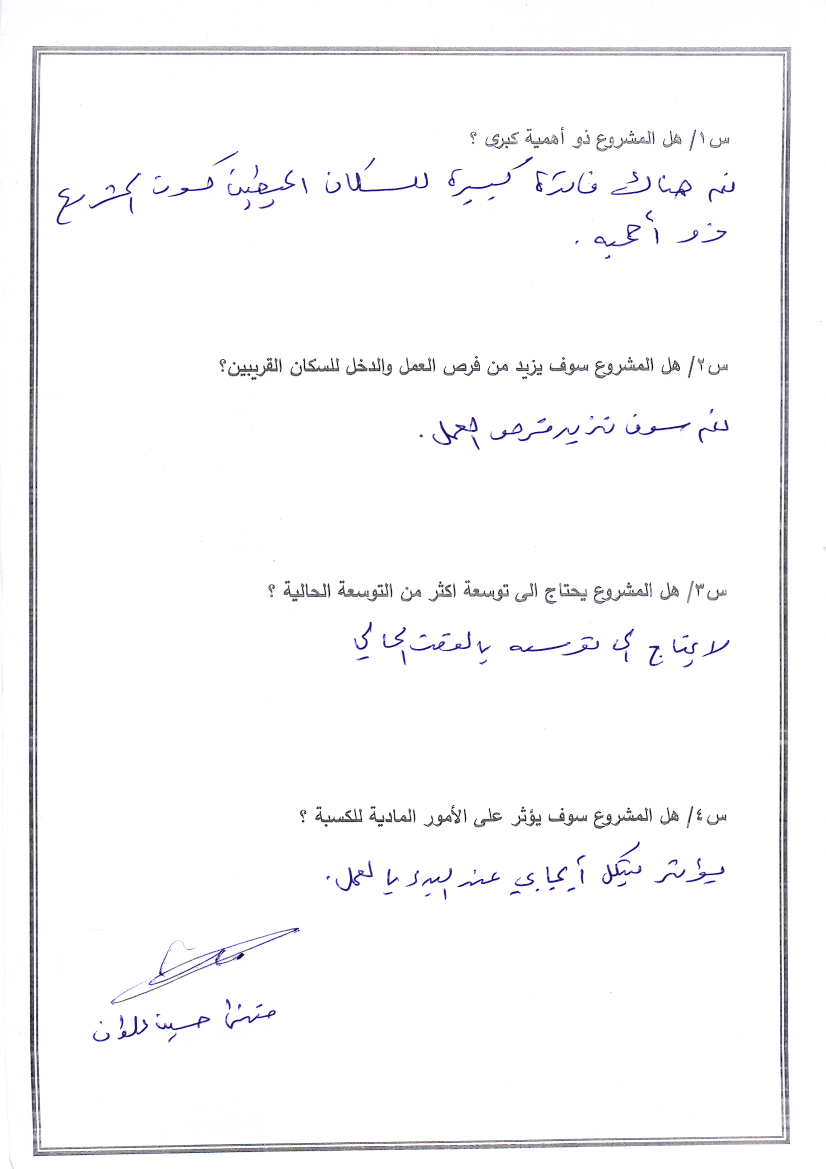 س١/ هل المشروع ذو أهمية كبرى ؟
نعم هناك فائدة كبيرة للسكان المحيطين كون المشروع
ذو أهميه .
س٢/ هل المشروع سوف يزيد من فرص العمل والدخل للسكان القريبين؟
نعم سوف تزيد فرص العمل .
س٣/ هل المشروع يحتاج الى توسعة اكثر من التوسعة الحالية ؟
لا يحتاج الى توسعه بالوقت الحالي
س٤/ هل المشروع سوف يؤثر على الأمور المادية للكسبة ؟
يؤثر بشكل أيجابي عند البدء بالعمل .
حسين علوان